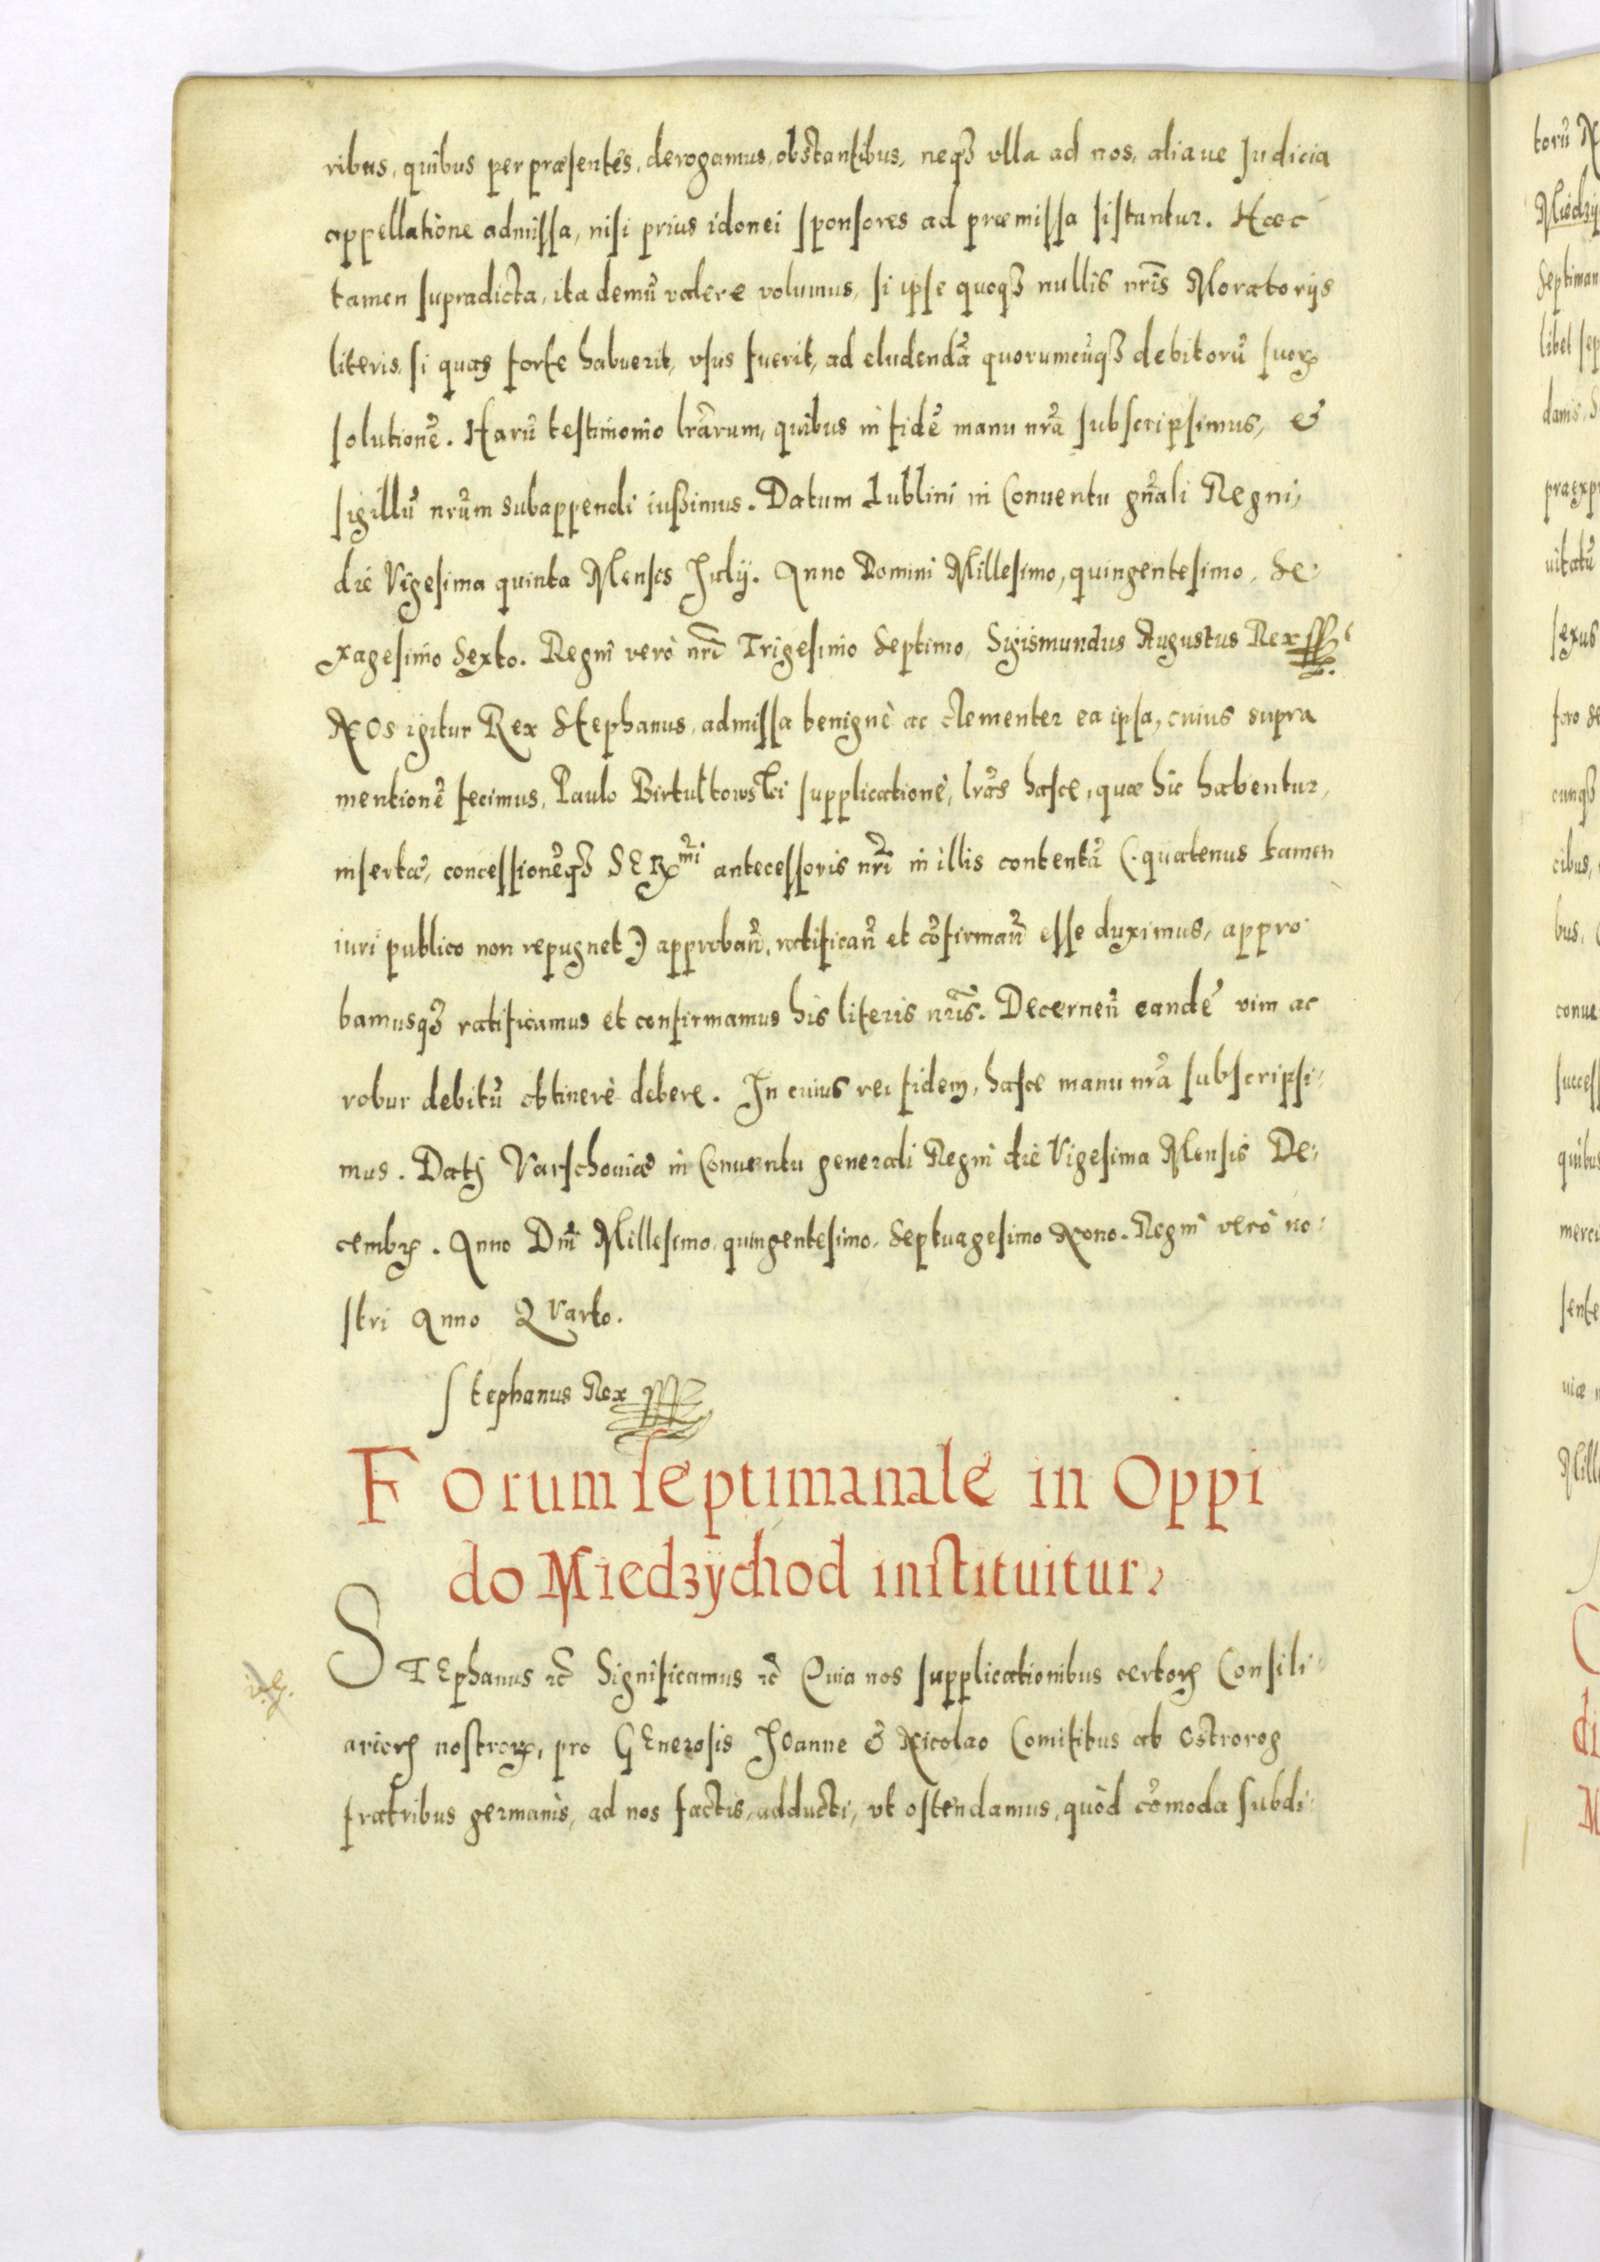 ribus, quibus per præsentes, derogamus, obstantibus, neq3 vlla ad nos, aliaue Judicia
appellatione admissa, nisi prius idonei sponsores ad præmissa sistantur. Hæc
tamen supradicta, ita demũ valere volumus, si ipse quoq3 nullis nr̃is Moratorijs
literis, si quas forte habuerit, vsus fuerit, ad eludendã quorumcũq3 debitorũ suorꝝ
solutionẽ. Harũ testimonio lr̃arum, quibus in fidẽ manu nr̃a subscripsimus, &
sigillũ nr̃um subappendi iußimus. Datum Lublini in Conuentu gñali Regni,
die Vigesima quinta Mensis Julij. Anno Domini Millesimo, quingentesimo, Se-
xagesimo Sexto. Regni verò nr̃i Trigesimo Septimo, Sigismundus Augustus Rex
NOs igitur Rex Stephanus, admissa benignè ac clementer ea ipsa, cuius supra
mentionẽ fecimus, Paulo Birtultowski supplicationè, lr̃as hasce, quæ hic habentur,
insertæ, concessionẽq3 SERmi antecessoris nr̃i in illis contentã (: quatenus tamen
iuri publico non repugnet :) approbañ, ratificañ et cõfirmañ esse duximus, appro-
bamusq3 ratificamus et confirmamus his literis nr̃is. Decerneñ eandẽ vim ac
robur debitũ obtinerè debere. In cuius rei fidem, hasce manu nr̃a subscripsi-
mus. Datꝭ Varschouiæ in Conuentu generali Regni die Vigesima Mensis De-
cembrꝭ. Anno Dñi Millesimo, quingentesimo, Septuagesimo Nono. Regni verò no-
stri Anno QVarto.
Stephanus Rex
Forum septimanale in Oppi
do Miedzÿchod instituitur,
STEphanus ⁊c̃ Significamus ⁊c̃ Quia nos supplicationibus certorꝝ Consili-
ariorꝝ nostrorꝝ, pro GEnerosis Joanne & Nicolao Comitibus ab Ostrorog
fratribus germanis, ad nos factis, adducti, vt ostendamus, quòd cõmoda subdi-